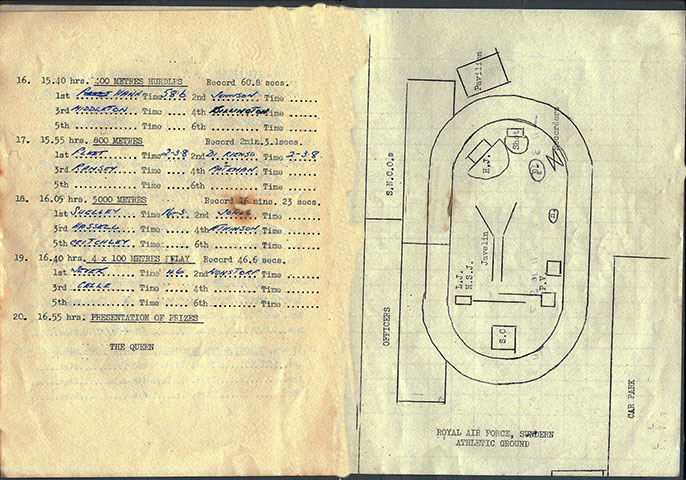 16. 15.40 hrs. 400 METRES HURDLES Record 60.8 secs.
1st HANN Time 58.6 2nd JOHNSON Time ......
3rd MIDDLETON Time ..... 4th Time ......
5th ........... Time ..... 6th ......... Time ......
17. 15.55 hrs. 800 METRES Record 2min.5.1secs.
1st Time 2-3.8 2nd Time 2-3.8.
3rd RAMSEY Time ..... 4th BATEMAN Time ......
5th ........... Time ..... 6th ......... Time ......
18. 16.05 hrs. 5000 METRES Record 16 mins. 23 secs.
1st SHELLEY Time 16-3. 2nd JONES Time ......
3rd HASSELL Time ..... 4th ATKINSON Time ......
5th CRITCHLEY Time ..... 6th ......... Time ......
19. 16.40 hrs. 4 x 100 METRES RELAY Record 46.6 secs.
1st JEVER Time 46 2nd WUNSTORF Time ......
3rd CELLE Time ..... 4th ......... Time ......
5th ........... Time ..... 6th ......... Time ......
20. 16.55 hrs. PRESENTATION OF PRIZES
THE QUEEN
Pavilion
Recorders
Shot
H.J.
D.
S.N.C.O.s
Javelin
L.J.
H.S.J.
P.V.
S.C.
OFFICERS
CAR PARK
ROYAL AIR FORCE, SUNDERN
ATHLETIC GROUND